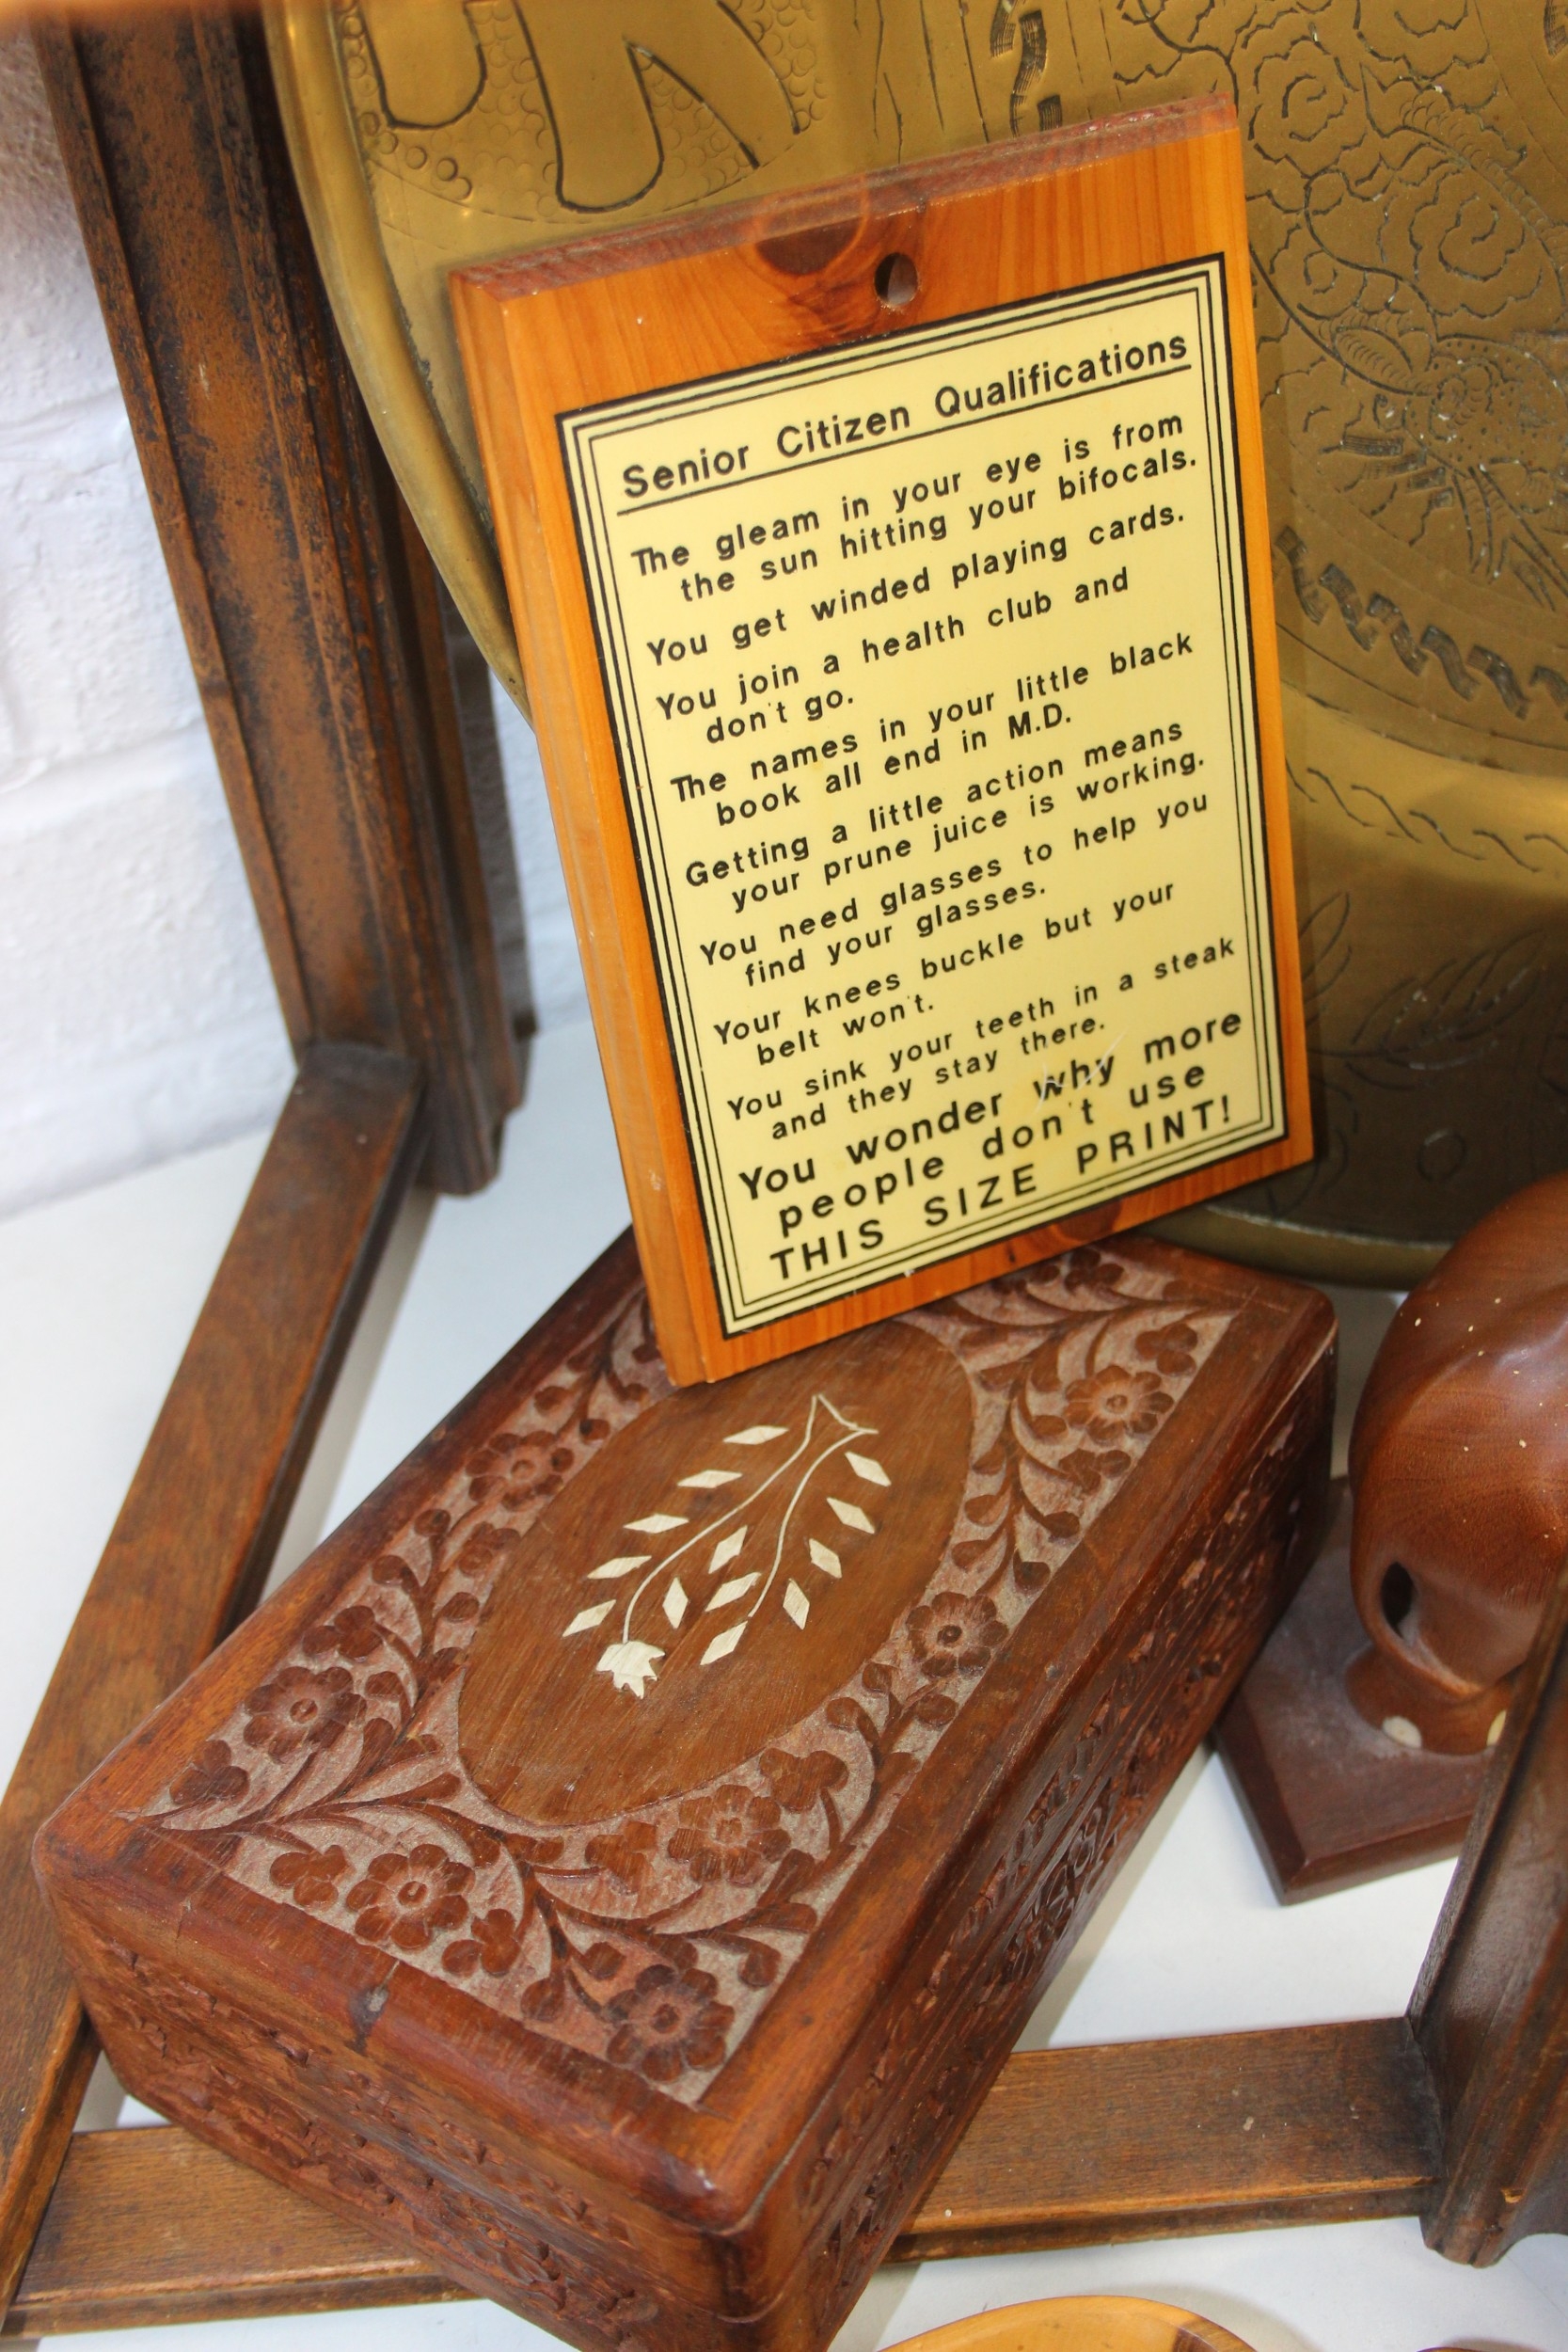 Senior Citizen Qualifications
The gleam in your eye is from
the sun hitting your bifocals.
You get winded playing cards.
You join a health club and
don't go.
The names in your little black
book all end in M.D.
Getting a little action means
your prune juice is working.
You need glasses to help you
find your glasses.
Your knees buckle but your
belt won't.
You sink your teeth in a steak
and they stay there.
You wonder why more
people don't use
THIS SIZE PRINT!